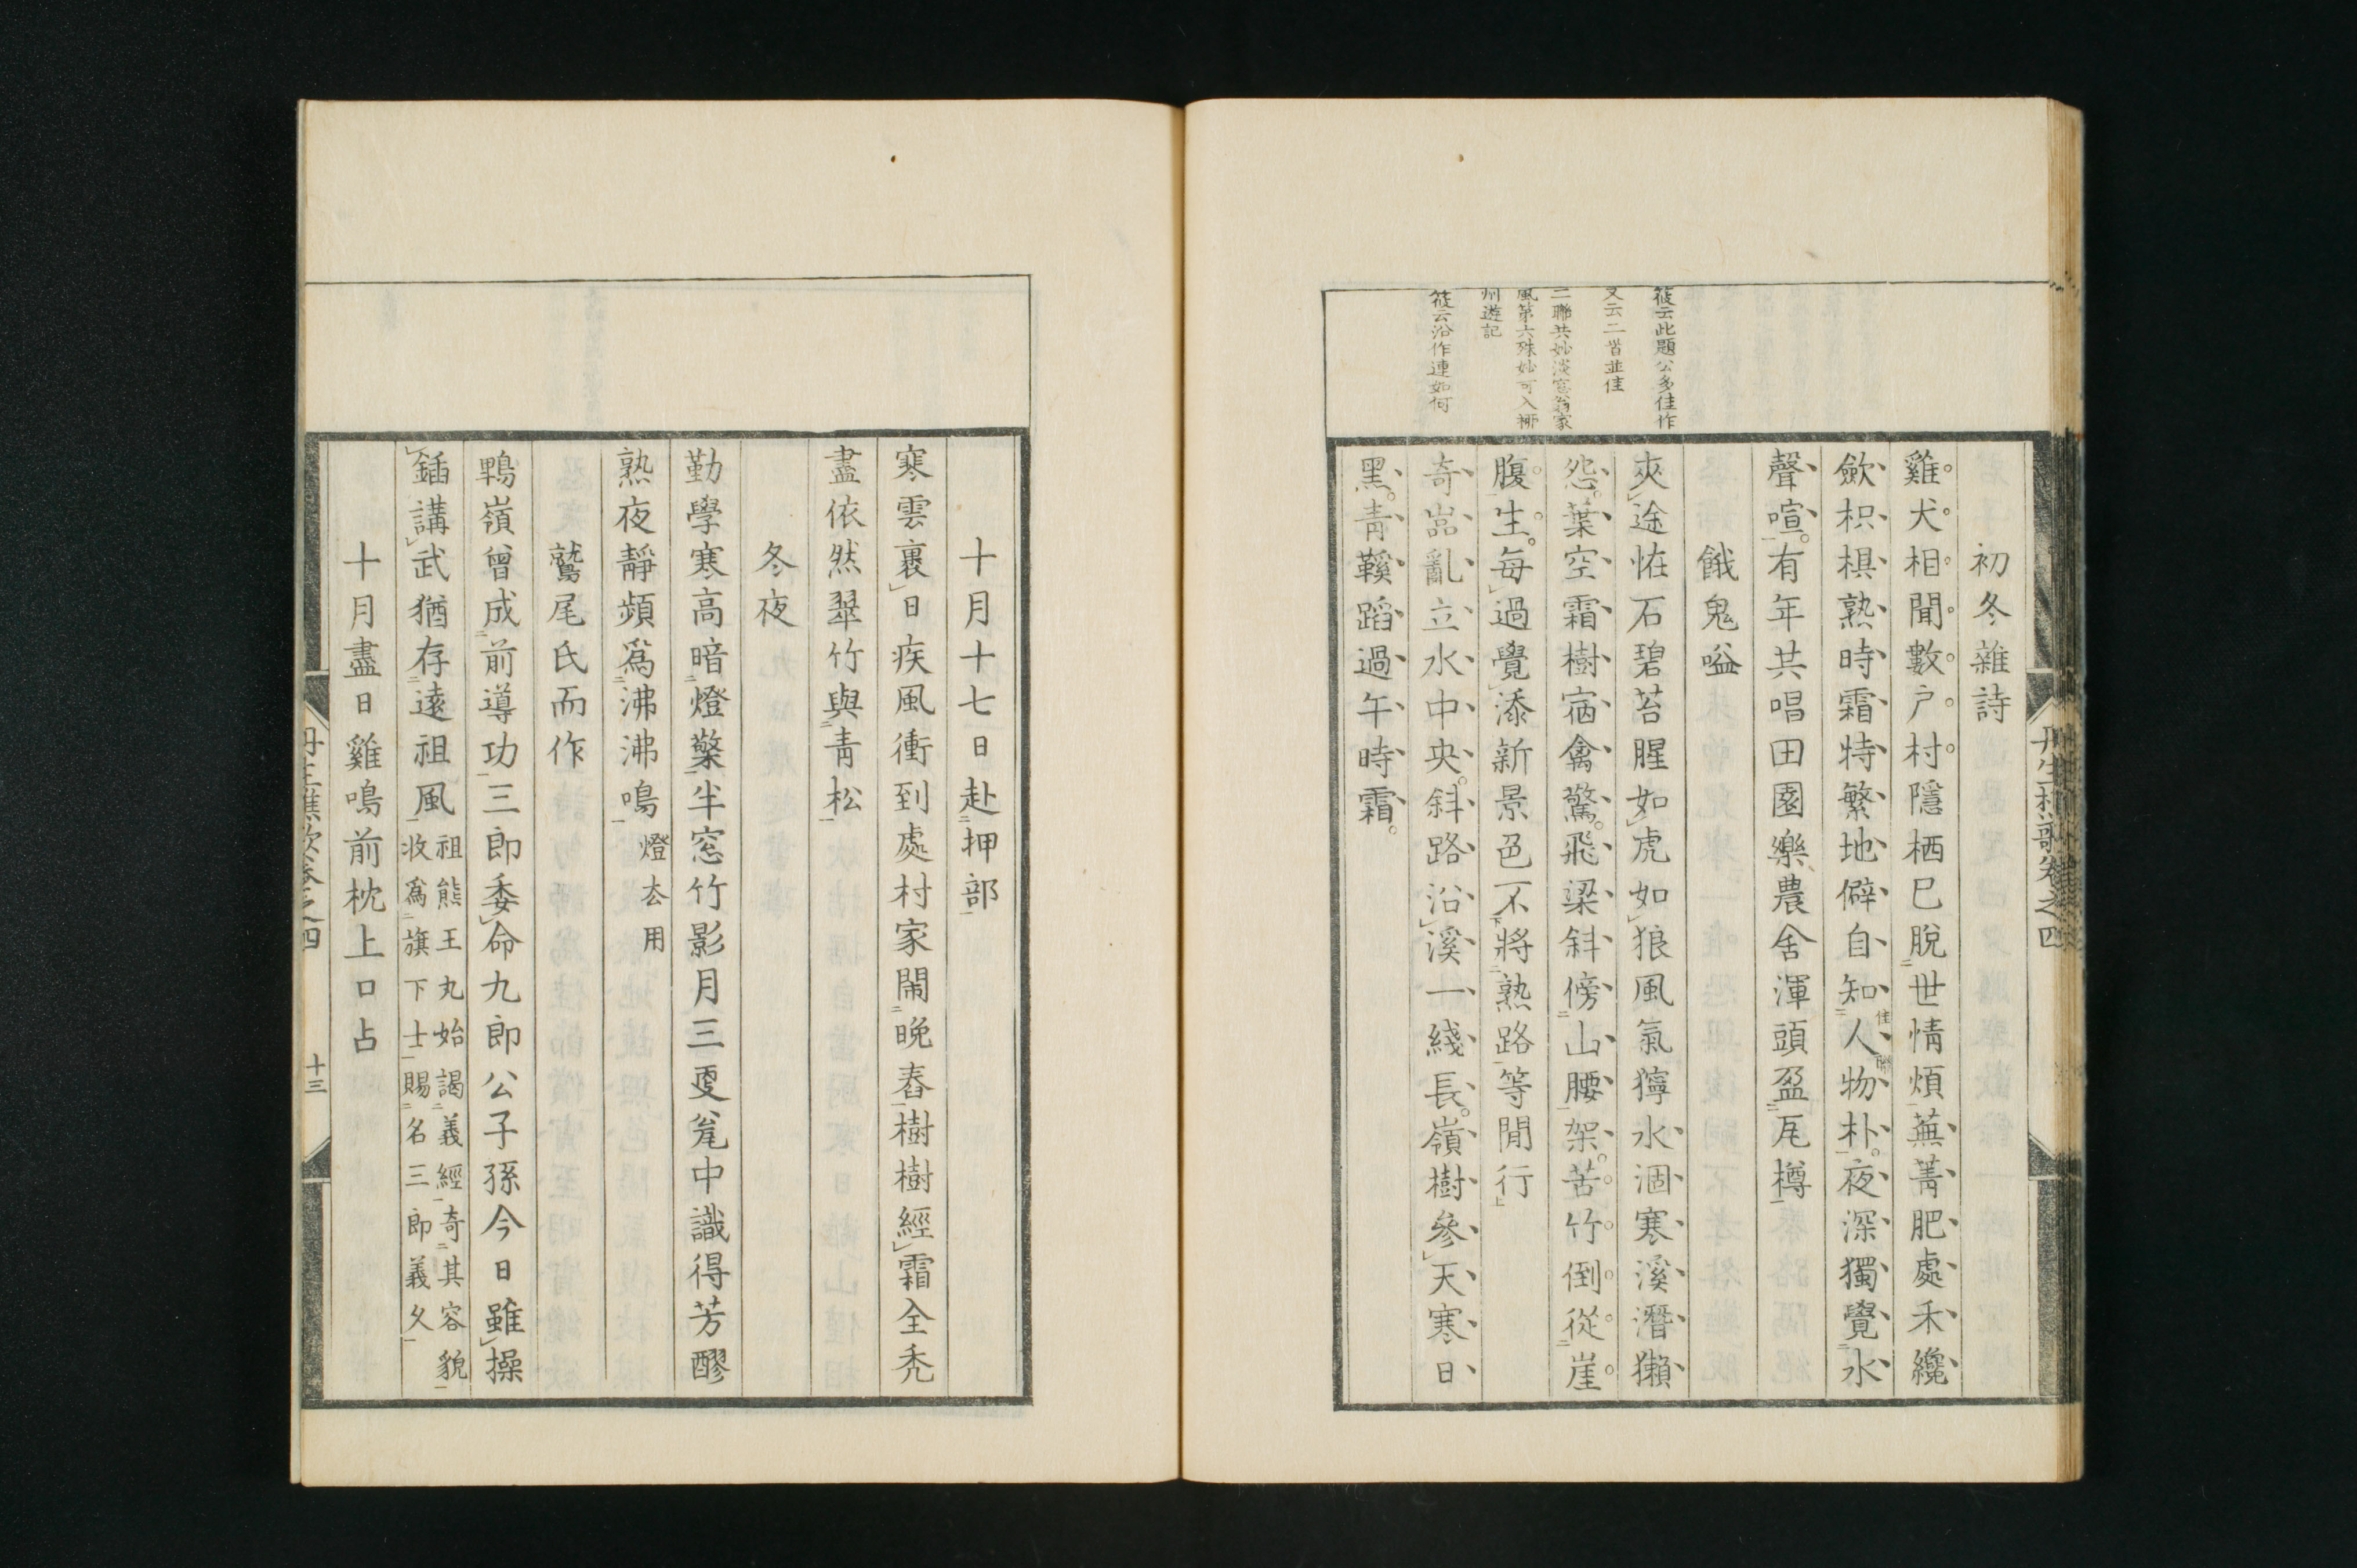 初冬雜詩
雞犬相聞數戸村隱栖已脫世情煩蕪菁肥處禾纔
歛枳椇熟時霜特繁地僻自知人物朴夜深獨覺水
聲喧有年共唱田園樂農舍渾頭盈瓦樽
餓鬼嗌
夾途怪石碧苔腥如虎如狼風氣獰水涸寒溪潛獺
怨葉空霜樹宿禽驚飛梁斜傍山腰架苦竹倒從崖
腹生每過覺添新景色不將熟路等閒行
奇嵓亂立水中央斜路沿溪一綫長嶺樹參天寒日
黑青鞵蹈過午時霜
佳聯
筱云此題公多佳作
又云二首並佳
二聯共妙淡窓翁家
風第六殊妙可入柳
州遊記
筱云沿作連如何
丹生樵歌卷之四
十月十七日赴押部
寒雲裹日疾風衝到處村家鬧晚舂樹樹經霜全禿
盡依然翠竹與青松
冬夜
勤學寒高暗燈檠半窓竹影月三更瓮中識得芳醪
熟夜靜頻爲沸沸鳴 燈去用
鷲尾氏而作
鵯嶺曾成前導功三郎委命九郎公子孫今日雖操
鍤講武猶存遠祖風 祖熊王丸始謁義經奇其容貌
收爲旗下士賜名三郎義久
十月盡日雞鳴前枕上口占
丹生樵歌卷之四
十三